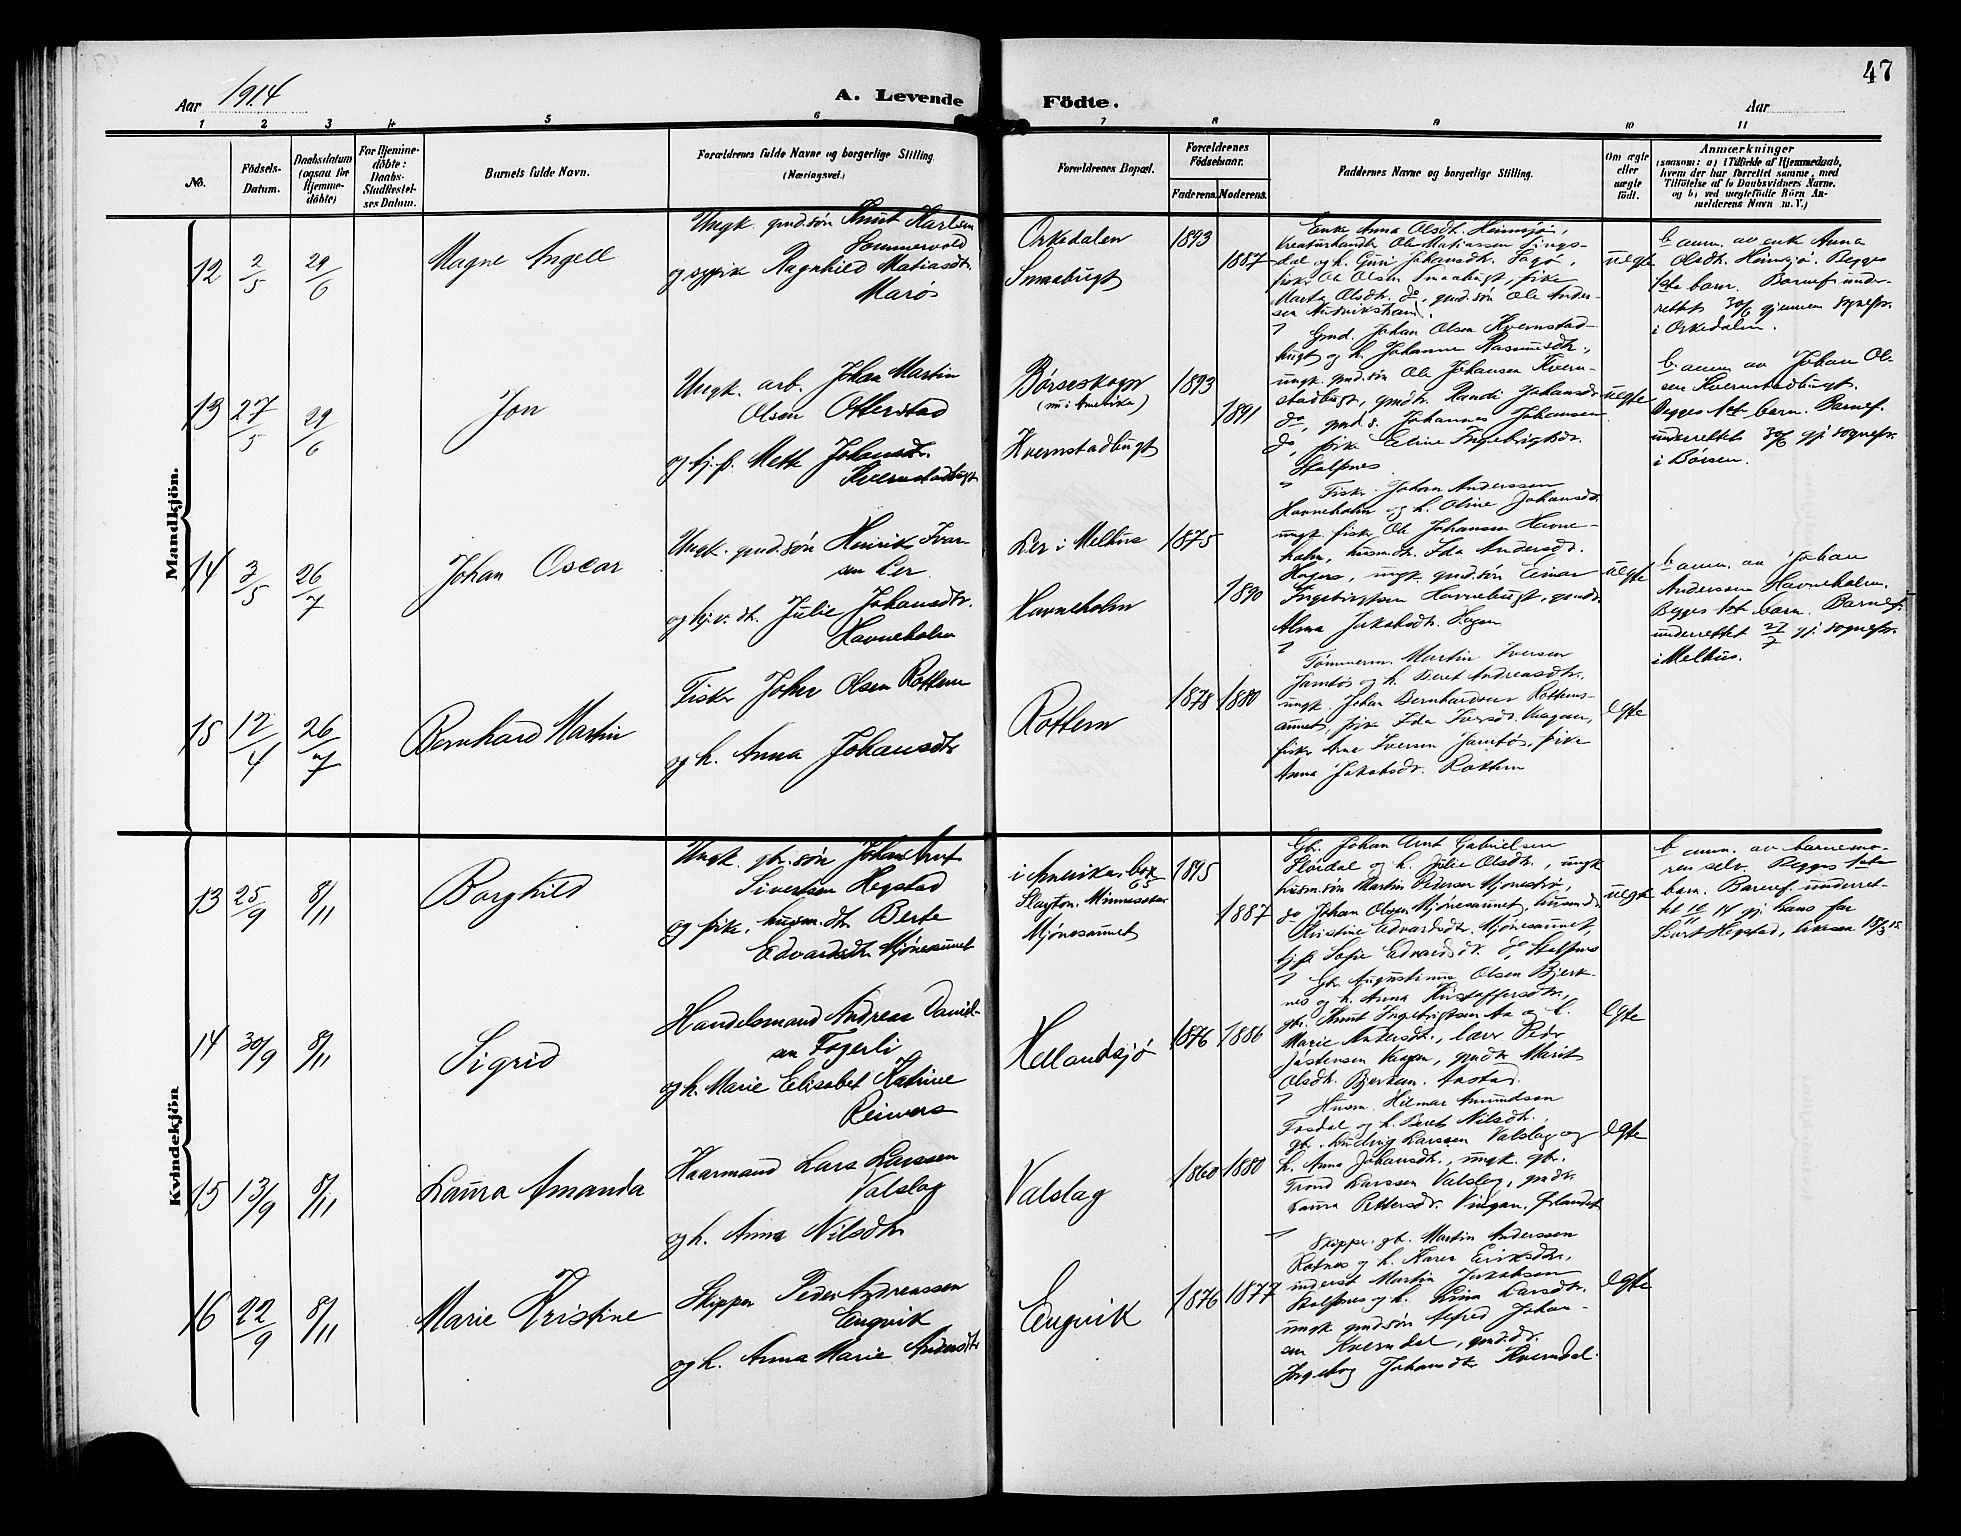 47
Aar 1914
A. Levende Födte.
Aar
1 2 3 4 5 6 7 8 9 10 11
No.
Födsels-
Datum.
Daabsdatum
(ogsaa for
Hjemme-
döbte)
For Hjemme-
döbte:
Daabs-
Stadfæstel-
ses Datum.
Barnets fulde Navn.
Forældrenes fulde Navne og borgerlige Stilling.
(Næringsvei.)
Forældrenes Bopæl.
Forældrenes
Födselsaar.
Faderens.
Moderens.
Faddernes Navne og borgerlige Stilling.
Om ægte
eller
uægte
födt.
Anmærkninger
(saasom: a) i Tilfælde af Hjemmedaab,
hvem der har forrettet samme, med
Tilföielse af to Daabsvidners Navne.
og b) ved uægtefödte Börn An-
melderens Navn m. V.)
Mandkjön.
12
2/5
29/6
Magne Angell
Ungk. gmd.sön Knut Karlsen
Sommervold
og sypik Ragnhild Matiasdtr.
Marøs
Orkedalen
Smaabugt
1893
1887
Enke Anna Olsdtr. Heimsjø,
kreaturhandl. Ole Matiassen
dal og h. Guri Johansdtr.
fisker Ole Olsen Smaabugt, pike
Marta Olsdtr. do, gmd.søn Ole Ander-
sen
uegte
b anm. av enk Anna
Olsdtr. Heimsjø. Begges
1ste barn. Barnef. under-
rettet 30/6 gjennem sognepr.
i Orkedalen.
13
27/5
29/6
Jon
Ungk. arb. Johan Martin
Olsen Otterstad
og hj.p. Mette Johansdtr.
Kvernstadbugt
Børseskogn
(nu i Amerika)
Kvernstadbugt
1893
1891
Gmd. Johan Olsen Kvernstad-
bugt og h. Johanna Rasmusdtr.,
ungk. gmd.søn Ole Johansen Kvern-
stadbugt, gmdtr. Randi Johansdtr
do, gmd.s. Johannes Johansen
do, pike Eline Ingebrigtsdtr.
Stalfnes
uegte
b anm. av Johan Ol-
sen Kvernstadbugt.
Begges 1st barn. Barnef.
underrettet 30/6 gj. sognepr.
i Børsen.
14
3/5
26/7
Johan Oscar
Ungk. gmd.søn Henrik Ivar-
sen Ler
og hj.v. dtr. Julie Johansdtr.
Havneholm
Ler i Melhus
Havneholm
1875
1890
Fisker Johan Anderssen
Havneholm og h. Oline Johansdtr.
ungk. fisk. Ole Johansen Havne-
holm, husmdtr. Ida Andersdtr.
Hagen, ungk. gmd.søn Einar
Ingebrigtsen Havnebugt, gmdtr.
Alma Jakobsdtr. Hagen
uegte
b anm. av Johan
Anderssen Havneholm.
Begges 1st barn. Barnef.
underrettet 27/7 gj. sognepr.
i Melhus.
15
12/4
26/7
Bernhard Martin
Fisker Johan Olsen Rottem
og h. Anna Johansdtr
Rottem
1878
1880
Tømmerm. Martin Iversen
Jamtøs og h. Beret Andreasdtr.,
ungk. Johan Bernhardsen Rottems-
aunet, pike Ida Iversdtr. Vaagan,
fisker Arne Iversen Jamtøs, pike
Anna Jakobsdtr. Rottem
egte
Kvindekjön
13
25/9
8/11
Borghild
Ungk. gbr.søn Johan Arnt
Sivertsen Hegstad
og pike, husm. dtr. Berte
Edvardsdtr. Mjønesaunet
i Amerika, box 65
Slayton, Minnesota
Mjønesaunet
1895
1887
Gbr. Johan Arnt Gabrielsen
Slørdal og h. Julie Olsdtr., ungk
husm.søn Martin Pedersen
do Johan Olsen Mjønesaunet, husmdtr.
Kristine Edvardsdtr. Mjønesaunet,
hj.p. Sofie Edvardsdtr. do, Stalfnes
uegte
b anm. av barnemo-
ren selv. Begges 1ste
barn. Barnef. underret-
tet 10/11 14 gj. hans far
Sivert Hegstad, 18/3 15
14
30/9
8/11
Sigrid
Handelsmand Andreas Daniel-
sen Fagerli
og h. Marie Elisabet Katrine
Reiners
Hellandsjø
1876
1886
Gbr. Augustinus Olsen Bjerk-
nes og h. Anna Kristoffersdtr.,
gbr. Knut Ingebrigtsen Aa og h.
Marie Andersdtr., lærer Peder
Jostensen Vaagan, gmdtr Marit
Olsdtr. Bjerkan. Aastad.
egte
15
13/9
8/11
Laura Amanda
Haarmand Lars Larssen
Valslag
og h. Anna Nilsdtr
Valslag
1860
1880
Husm. Hilmar Amundsen
Fosdal og h. Beret Nilsdtr.
gbr. Ludvig Larssen Valslag og
h. Anna Johansdtr., ungk. gbr.
Trond Larssen Valslag, gmdtr.
Laura Pettersdtr. Vingan, Ørlandet
egte
16
22/9
8/11
Marie Kristine
Skipper Peder Andreassen
Engvik
og h. Anna Marie Andersdtr
Engvik
1876
1877
Skipper, gbr. Martin Anderssen
Rotnes og h. Karen Eriksdtr.
inderst Martin Jakobsen
Stalfnes og h. Lina Larsdtr.
ungk gmd.søn Alfred Johan-
sen Kverndal, gmd.dtr.
Ingeborg Johansdtr. Kverndal.
egte